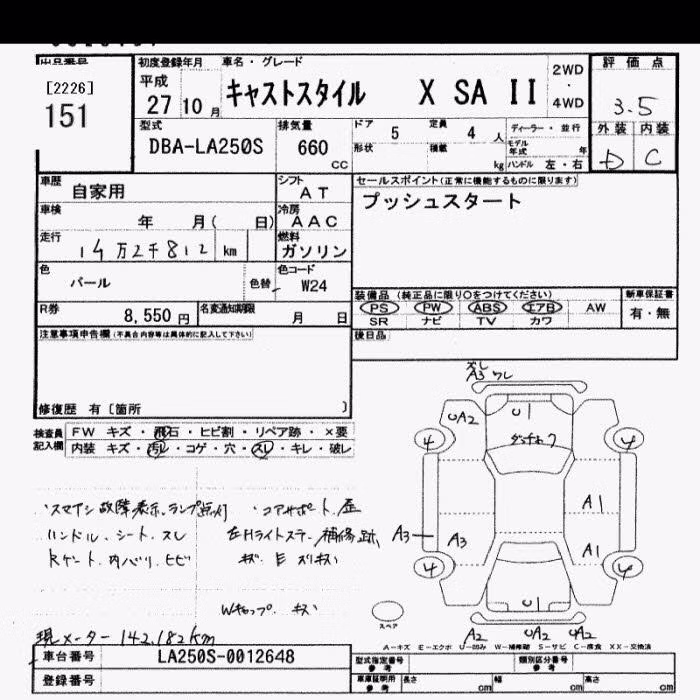 出品番号
[2226]
151
初度登録年月
平成
27 10 月
車名・グレード
キャストスタイル X SA II
2WD
・
4WD
評価点
3.5
外装 内装
D C
型式
DBA-LA250S
排気量
660 cc
ドア 5
定員 4 人
形状
積載 kg
ディーラー・並行
モデル年式 年
ハンドル 左・右
車歴 自家用
シフト AT
車検 年 月( 日)
冷房 AAC
走行 14万2千812 km
燃料 ガソリン
色 パール
色替
色コード W24
R券 8,550 円
名変通知期限 月 日
セールスポイント(正常に機能するものに限ります)
プッシュスタート
装備品 (純正品に限り○をつけてください)
PS PW ABS エアB AW
SR ナビ TV カワ
新車保証書
有・無
後日品
注意事項申告欄(不具合内容等は具体的に記入して下さい)
修復歴 有〔箇所 〕
検査員記入欄
FW キズ・飛石・ヒビ割・リペア跡・×要
内装 キズ・汚レ・コゲ・穴・スレ・キレ・破レ
・スマアシ故障表示、ランプ点灯
・コアサポート、歪
ハンドル、シート、スレ
左Hライトステー、補修跡
Rゲート、内バリ、ヒビ
キズ E スリキズ
Wキャップ キズ
現メーター 142,182km
A3 ワレ
UA2
U1
4
4
A1
A3
A3
A1
4
4
U1
A2
UA2
UA2
スペア
A-キズ E-エクボ U-凹み W-補修跡 S-サビ C-腐食 XX-交換済
車台番号 LA250S-0012648
登録番号
型式指定番号 参考
類別区分番号 参考
車庫証明用 参考
長さ cm
幅 cm
高さ cm